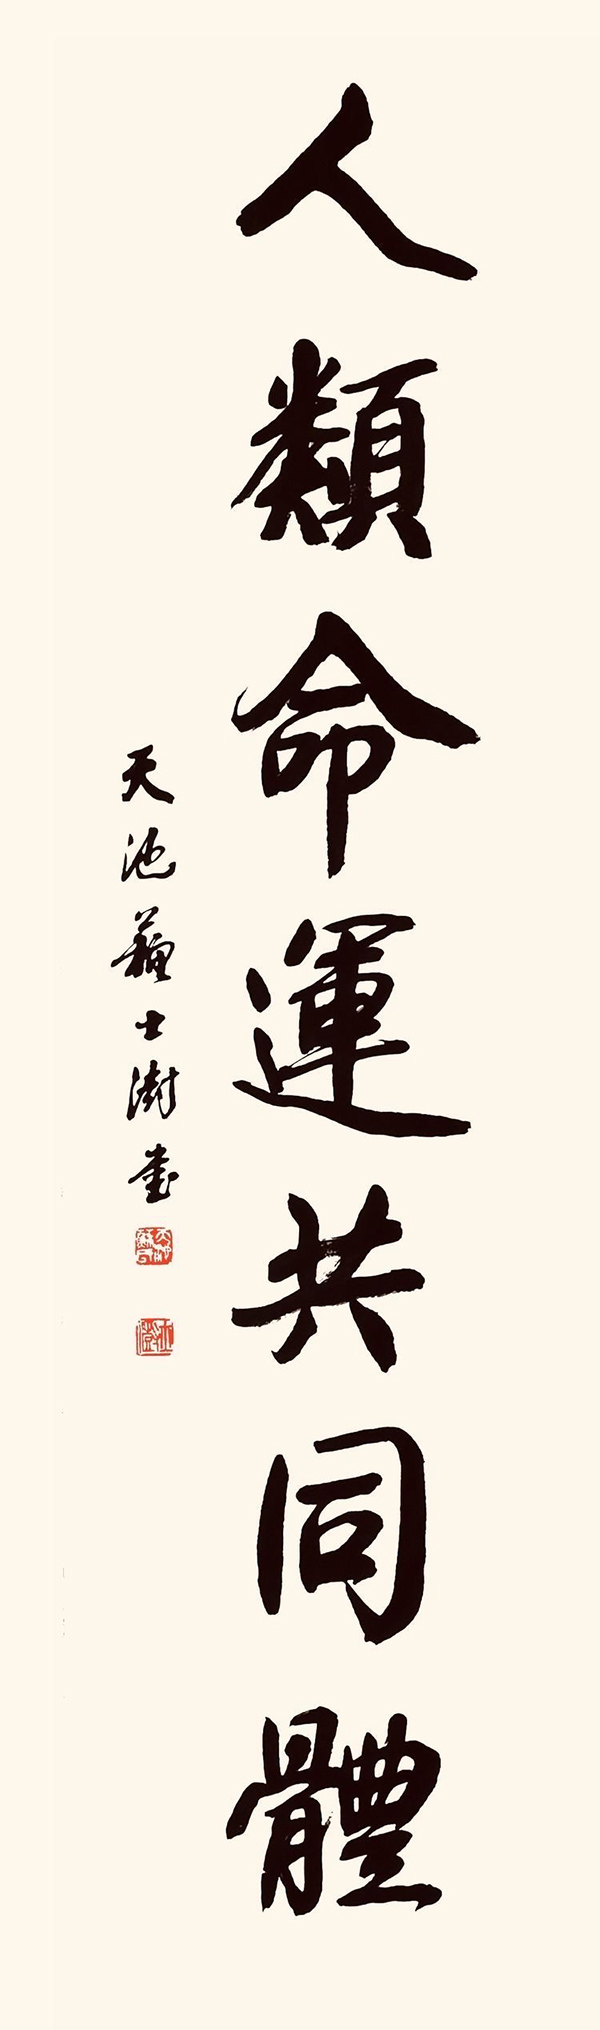 人類命運共同體
天池蘇士澍書